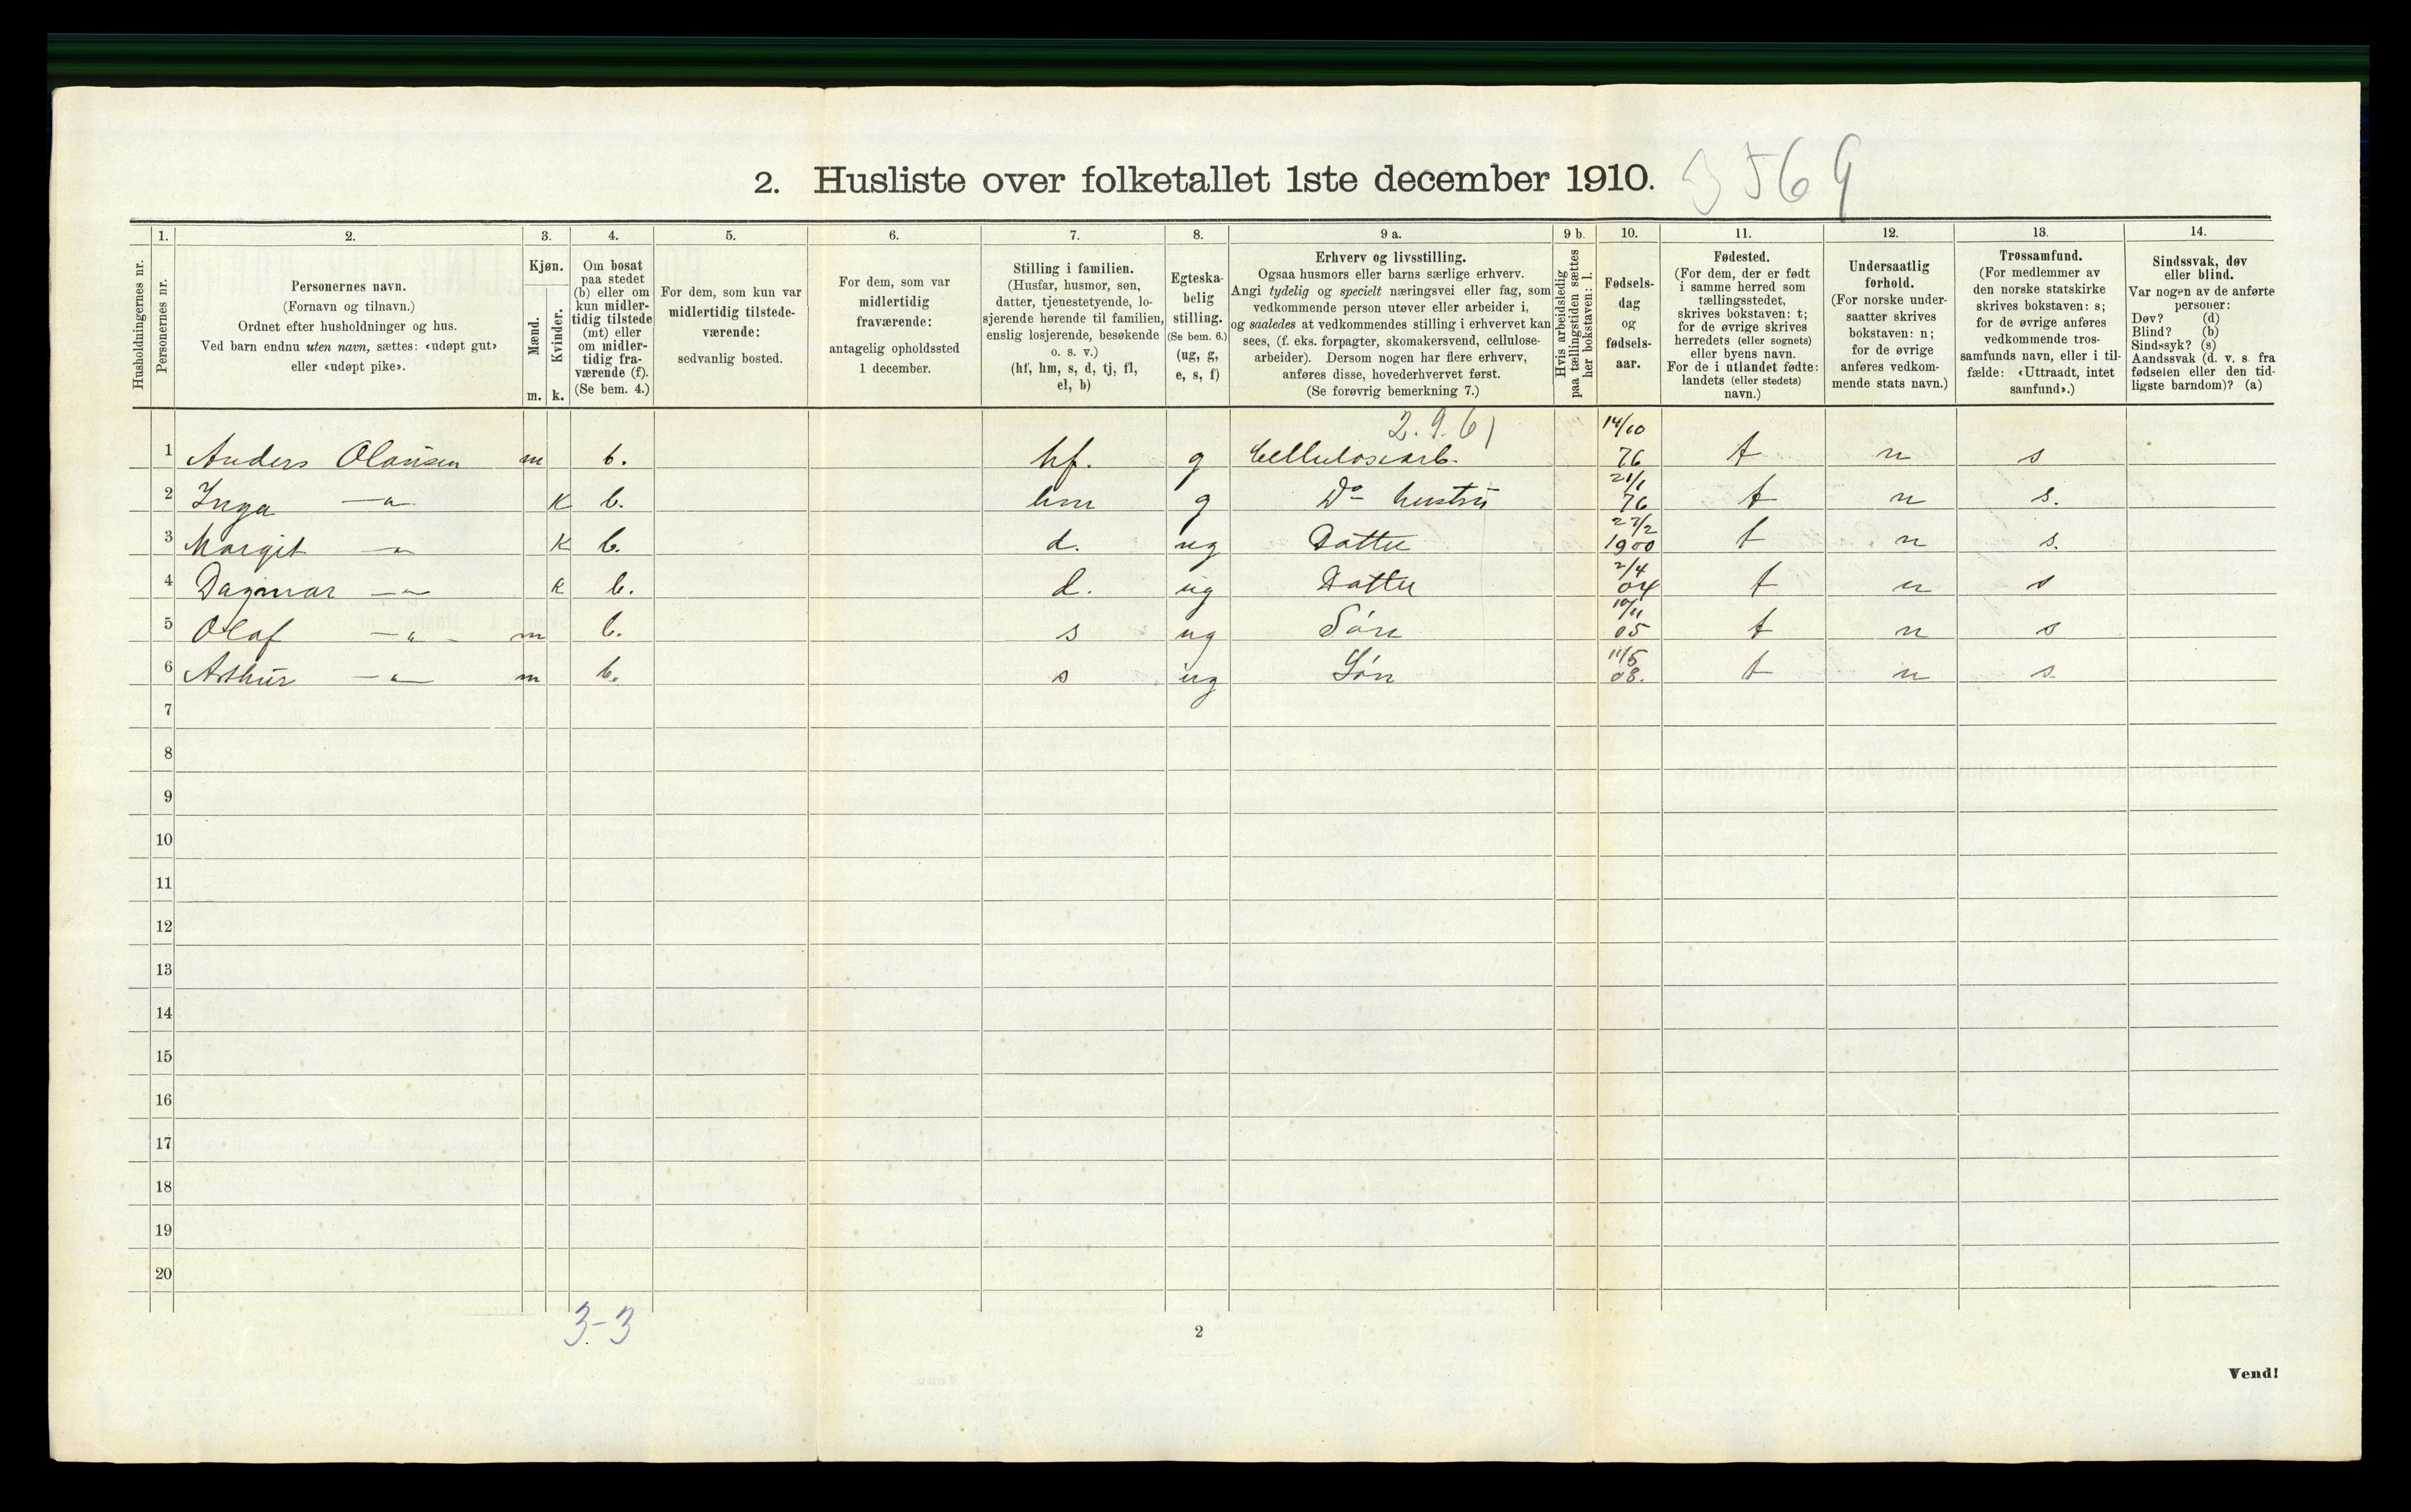 2. Husliste over folketallet 1ste december 1910. 3569
1. 2. 3. 4. 5. 6. 7. 8. 9 a. 9 b. 10. 11. 12. 13. 14.
Husholdningernes nr.
Personernes nr.
Personernes navn.
(Fornavn og tilnavn.)
Ordnet efter husholdninger og hus.
Ved barn endnu uten navn, sættes: «udøpt gut»
eller «udøpt pike».
Kjøn.
Mænd.
Kvinder.
m. k.
Om bosat
paa stedet
(b) eller om
kun midler-
tidig tilstede
(mt) eller
om midler-
tidig fra-
værende (f).
(Se bem. 4.)
For dem, som kun var
midlertidig tilstede-
værende:
sedvanlig bosted.
For dem, som var
midlertidig
fraværende:
antagelig opholdssted
1 december.
Stilling i familien.
(Husfar, husmor, søn,
datter, tjenestetyende, lo-
sjerende hørende til familien,
enslig losjerende, besøkende
o. s. v.)
(hf, hm, s, d, tj, fl,
el, b)
Egteska-
belig
stilling.
(Se bem. 6.)
(ug, g,
e, s, f)
Erhverv og livsstilling.
Ogsaa husmors eller barns særlige erhverv.
Angi tydelig og specielt næringsvei eller fag, som
vedkommende person utøver eller arbeider i,
og saaledes at vedkommendes stilling i erhvervet kan
sees, (f. eks. forpagter, skomakersvend, cellulose-
arbeider). Dersom nogen har flere erhverv,
anføres disse, hovederhvervet først.
(Se forøvrig bemerkning 7.)
Hvis arbeidsledig
paa tællingstiden sættes
her bokstaven: l.
Fødsels-
dag
og
fødsels-
aar.
Fødested.
(For dem, der er født
i samme herred som
tællingsstedet,
skrives bokstaven: t;
for de øvrige skrives
herredets (eller sognets)
eller byens navn.
For de i utlandet fødte:
landets (eller stedets)
navn.)
Undersaatlig
forhold.
(For norske under-
saatter skrives
bokstaven: n;
for de øvrige
anføres vedkom-
mende stats navn.)
Trossamfund.
(For medlemmer av
den norske statskirke
skrives bokstaven: s;
for de øvrige anføres
vedkommende tros-
samfunds navn, eller i til-
fælde: «Uttraadt, intet
samfund».)
Sindssvak, døv
eller blind.
Var nogen av de anførte
personer:
Døv? (d)
Blind? (b)
Sindssyk? (s)
Aandssvak (d. v. s. fra
fødselen eller den tid-
ligste barndom)? (a)
2.9.61 14/10
1 Anders Olausen m b. hf. g Cellulosearb. 76 t n s
21/1
2 Inga —„— K b. hm g Do hustru 76 t n s.
27/2
3 Margit —„— K b. d. ug Datter 1900 t n s.
2/4
4 Dagmar —„— K b. d. ug Datter 04 t n s
10/11
5 Olaf —„— m b. s ug Søn 05 t n s
11/5
6 Arthur —„— m b. s ug Søn 08. t n s.
7
8
9
10
11
12
13
14
15
16
17
18
19
20
3-3
2
Vend!